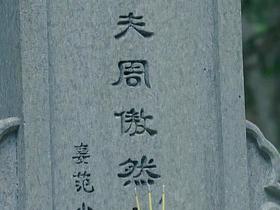 夫周傲然
妻范